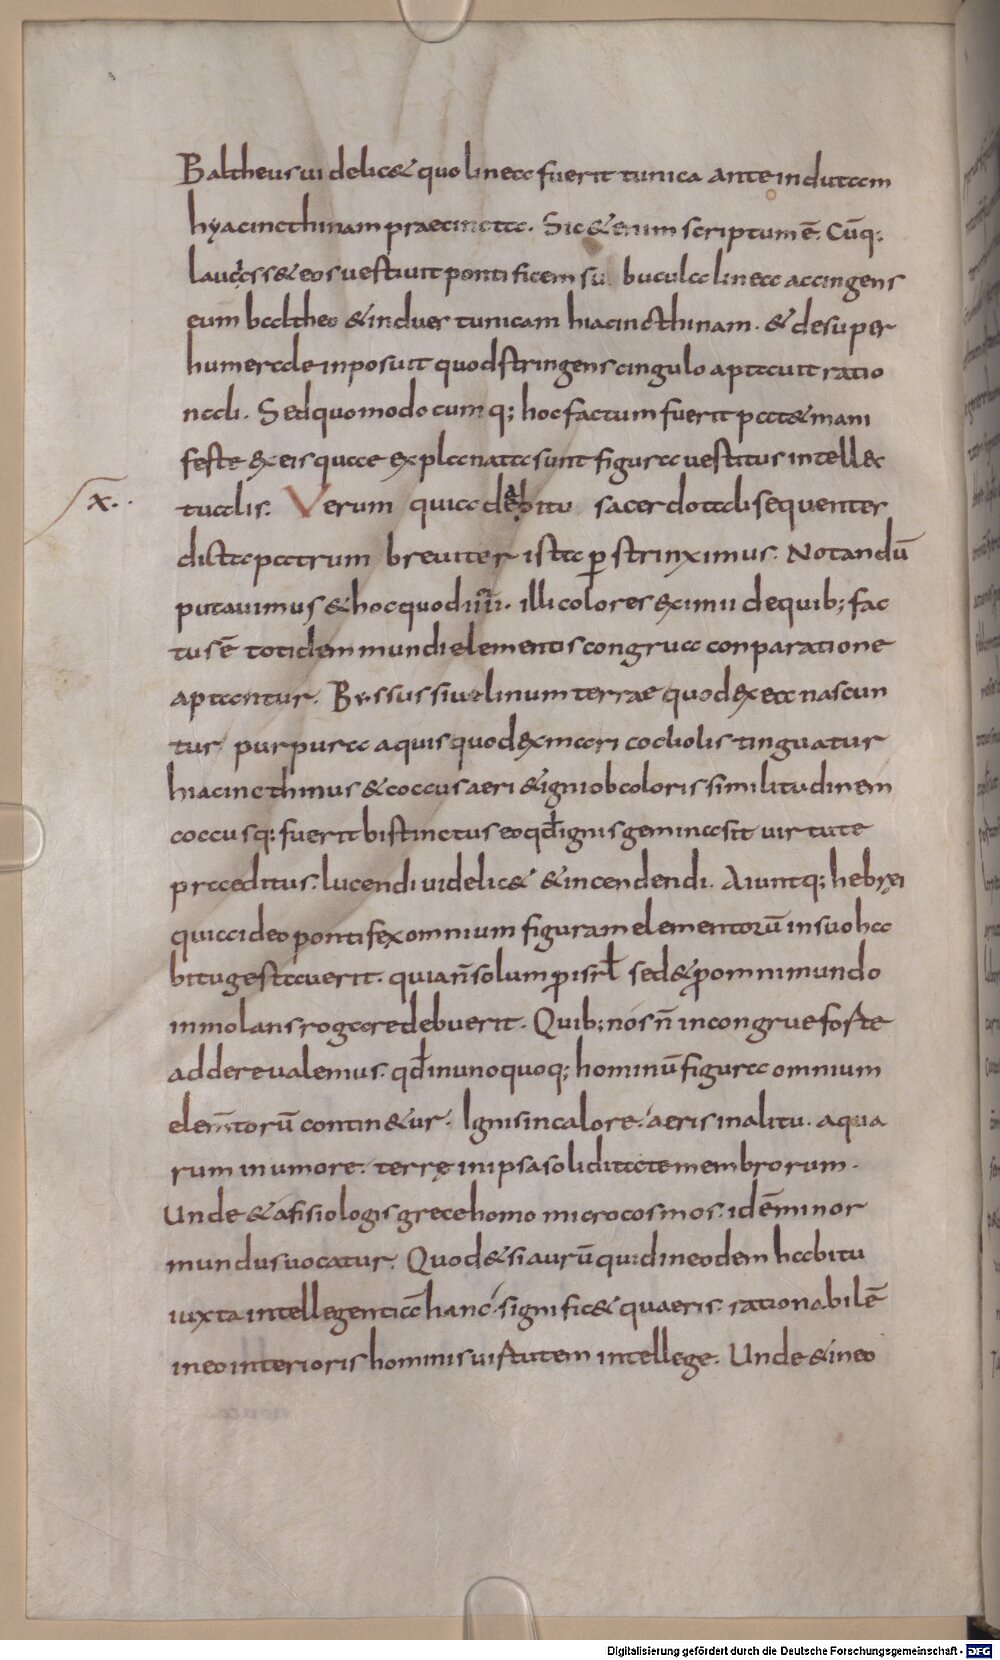 Baltheus videlic& quo linea fuerit tunica ante indutam
hyacincthinam praecincta. Sic & enim scriptum ē. Cūq;
lauass& eos vestiuit pontificem su buculaa linea accingens
eum baltheo & induer tunicam hiacincthinam. & desuper
humerale inposuit quod stringens cingulo aptauit ratio
nali. Sed quomodocumq; hoc factum fuerit pat& mani
feste ex eis quae explanata sunt figura vestitus intellec
tualis. Verum quia de habitu sacerdotali sequenter
x.
dicta patrum breuiter ista ꝑstrinximus. Notandū
putauimus & hoc quod iiii. illi colores eximii de quib; fac
tus ē totidem mundi elementis congrua conparatione
aptantur. Byssus siue linum terrae quod ex ea nascun
tur purpura aquis quod ex mari cocliolis tinguatur
hiacincthinus & coccus aeri & igni ob coloris similitudinem
coccusq: fuerit bis tinctus eo qđ ignis gemina sit uirtute
praeditus. lucendi uidelic& & incendendi. Aiuntq; hebrei
quia ideo pontifex omnium figuram elementorū in suo ha
bitu gestauerit. quia n̄ solum ꝑ isrl̄ sed & ꝑ omni mundo
inmolans rogare debuerit. Quib; nos n̄ incongrue foste
addere ualemus. qđ in unoquoq; hominū figura omnium
elem̄torū contin&ur. Ignis in calore. aeris in alitu. aqua
rum in umore. terrę in ipsa soliditate membrorum.
Unde & a fisiologis grece homo microcosmos. id ē minor
mundus uocatur. Quod & si aurū quid in eodem habitu
iuxta intellegentiā hanc signific& quaeris. rationabilē
in eo interioris hominis uirtutem intellege. Unde & in eo
Digitalisierung gefördert durch die Deutsche Forschungsgemeinschaft - DFG